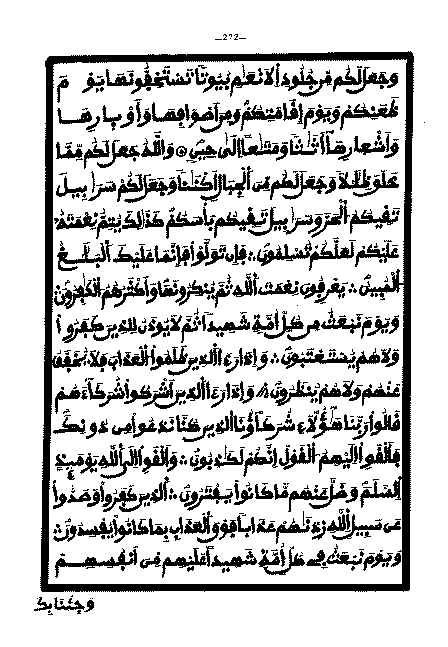 —272—
وَجَعَلَ لَكُم مِّن جُلُودِ اِ۬لَانْعَٰمِ بُيُوتاً تَسْتَخِفُّونَهَا يَوْمَ
ظَعَنِكُمْ وَيَوْمَ إِقَامَتِكُمْ وَمِنَ اَصْوَافِهَا وَأَوْبَارِهَا
وَأَشْعَارِهَا أَثَٰثاً وَمَتَٰعاً اِلَىٰ حِينٍ ۞ وَاللَّهُ جَعَلَ لَكُم مِّمَّا
خَلَقَ ظِلَٰلاً وَجَعَلَ لَكُم مِّنَ اَ۬لْجِبَالِ أَكْنَٰناً وَجَعَلَ لَكُمْ سَرَٰبِيلَ
تَقِيكُمُ اُ۬لْحَرَّ وَسَرَٰبِيلَ تَقِيكُم بَأْسَكُمْ كَذَٰلِكَ يُتِمُّ نِعْمَتَهُ
عَلَيْكُمْ لَعَلَّكُمْ تُسْلِمُونَ ∴ فَإِن تَوَلَّوْاْ فَإِنَّمَا عَلَيْكَ اَ۬لْبَلَٰغُ
اُ۬لْمُبِينُ ∴ يَعْرِفُونَ نِعْمَتَ اَ۬للَّهِ ثُمَّ يُنكِرُونَهَا وَأَكْثَرُهُمُ اُ۬لْكَٰفِرُونَ
وَيَوْمَ نَبْعَثُ مِن كُلِّ أُمَّةٍ شَهِيداً ثُمَّ لَا يُوذَنُ لِلذِينَ كَفَرُواْ
وَلَا هُمْ يُسْتَعْتَبُونَ ∴ وَإِذَا رَءَا اَ۬لذِينَ ظَلَمُواْ اُ۬لْعَذَابَ فَلَا يُخَفَّفُ
عَنْهُمْ وَلَا هُمْ يُنظَرُونَ ∴ وَإِذَا رَءَا اَ۬لذِينَ أَشْرَكُواْ شُرَكَآءَهُمْ
قَالُواْ رَبَّنَا هَٰؤُلَآءِ شُرَكَآؤُنَا اَ۬لذِينَ كُنَّا نَدْعُواْ مِن دُونِكَ
فَأَلْقَوِاْ اِلَيْهِمُ اُ۬لْقَوْلَ إِنَّكُمْ لَكَٰذِبُونَ ∴ وَأَلْقَوِاْ اِلَى اَ۬للَّهِ يَوْمَئِذٍ
اِ۬لسَّلَمَ وَضَلَّ عَنْهُم مَّا كَانُواْ يَفْتَرُونَ ∴ اَ۬لذِينَ كَفَرُواْ وَصَدُّواْ
عَن سَبِيلِ اِ۬للَّهِ زِدْنَٰهُمْ عَذَاباً فَوْقَ اَ۬لْعَذَابِ بِمَا كَانُواْ يُفْسِدُونَ ∴
وَيَوْمَ نَبْعَثُ فِي كُلِّ أُمَّةٍ شَهِيداً عَلَيْهِم مِّنَ اَنفُسِهِمْ
وجئنا بك